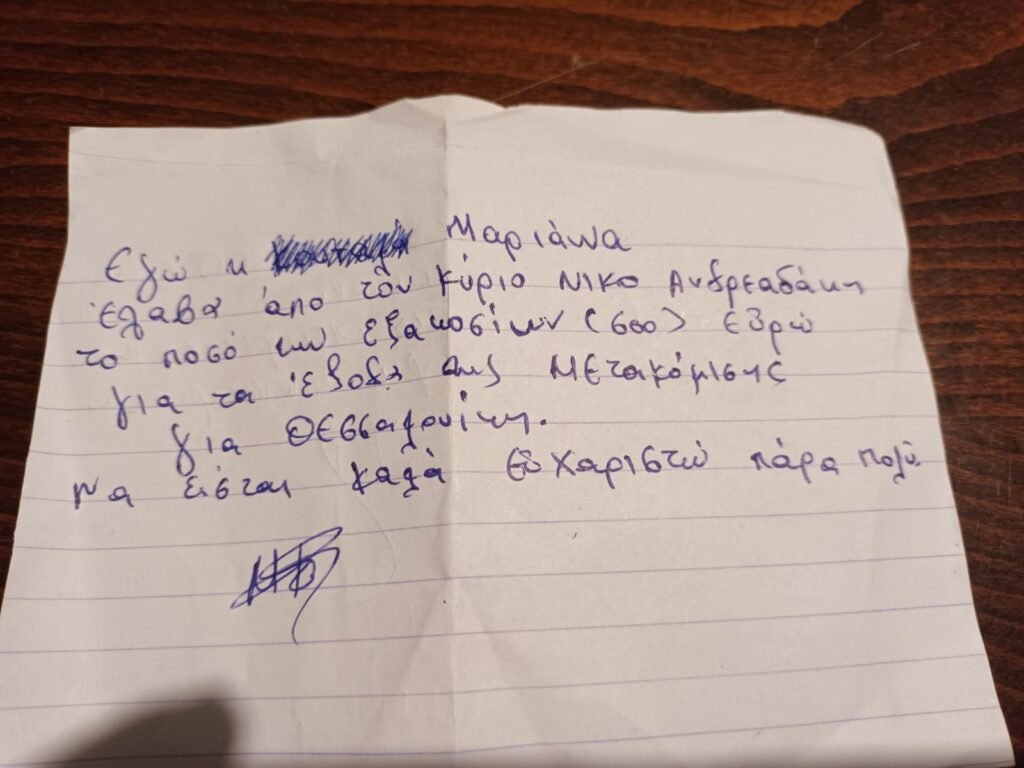 Εγώ η Μαριάννα
έλαβα άπο τον Κύριο Νικο Ανδρεαδάκη
το ποσό των εξακοσίων (600) εβρώ
για τα έξοδα της Μετακόμισης
για Θεσσαλονίκη.
Να είσται καλά εύχαριστώ πάρα πολύ